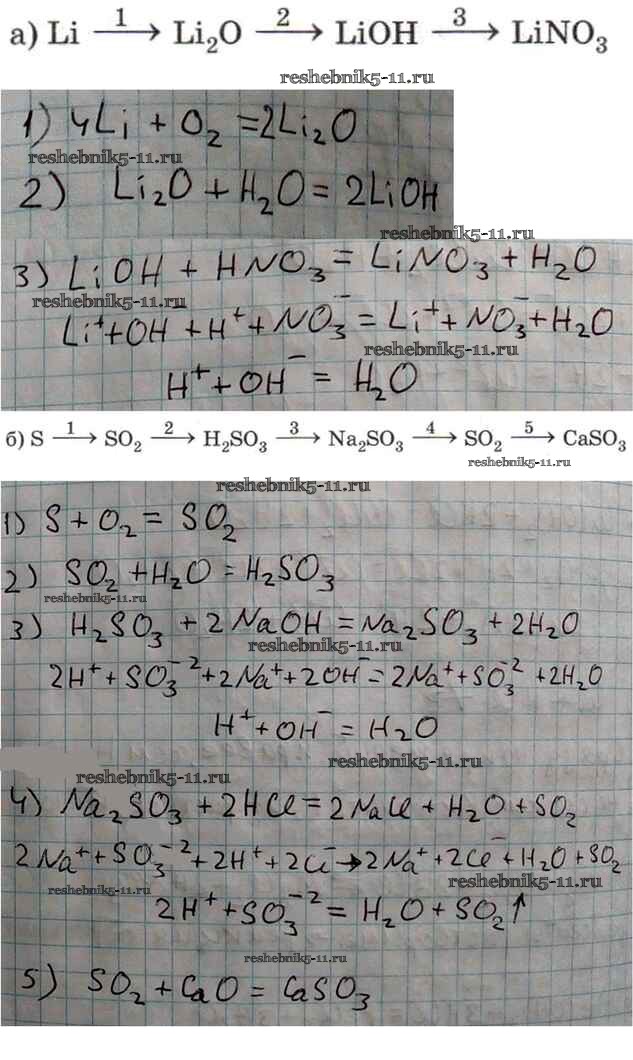 а) Li 1→ Li₂O 2→ LiOH 3→ LiNO₃
reshebnik5-11.ru
1) 4Li + O₂ = 2Li₂O
reshebnik5-11.ru
2) Li₂O + H₂O = 2LiOH
reshebnik5-11.ru
3) LiOH + HNO₃ = LiNO₃ + H₂O
reshebnik5-11.ru
Li⁺ + OH + H⁺ + NO₃⁻ = Li⁺ + NO₃⁻ + H₂O
reshebnik5-11.ru
H⁺ + OH⁻ = H₂O
б) S 1→ SO₂ 2→ H₂SO₃ 3→ Na₂SO₃ 4→ SO₂ 5→ CaSO₃
reshebnik5-11.ru
reshebnik5-11.ru
1) S + O₂ = SO₂
2) SO₂ + H₂O = H₂SO₃
reshebnik5-11.ru
3) H₂SO₃ + 2NaOH = Na₂SO₃ + 2H₂O
reshebnik5-11.ru
2H⁺ + SO₃⁻² + 2Na⁺ + 2OH⁻ = 2Na⁺ + SO₃⁻² + 2H₂O
H⁺ + OH⁻ = H₂O
reshebnik5-11.ru
reshebnik5-11.ru
4) Na₂SO₃ + 2HCl = 2NaCl + H₂O + SO₂
2Na⁺ + SO₃⁻² + 2H⁺ + 2Cl⁻ → 2Na⁺ + 2Cl⁻ + H₂O + SO₂
reshebnik5-11.ru
reshebnik5-11.ru
2H⁺ + SO₃⁻² = H₂O + SO₂↑
reshebnik5-11.ru
5) SO₂ + CaO = CaSO₃